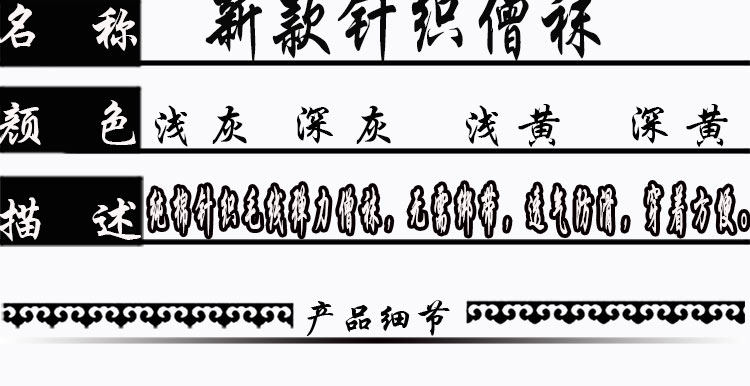 名 称 新款针织僧袜
颜 色 浅灰 深灰 浅黄 深黄
描 述 纯棉针织毛线弹力僧袜，无需绑带，透气防滑，穿着方便。
产品细节